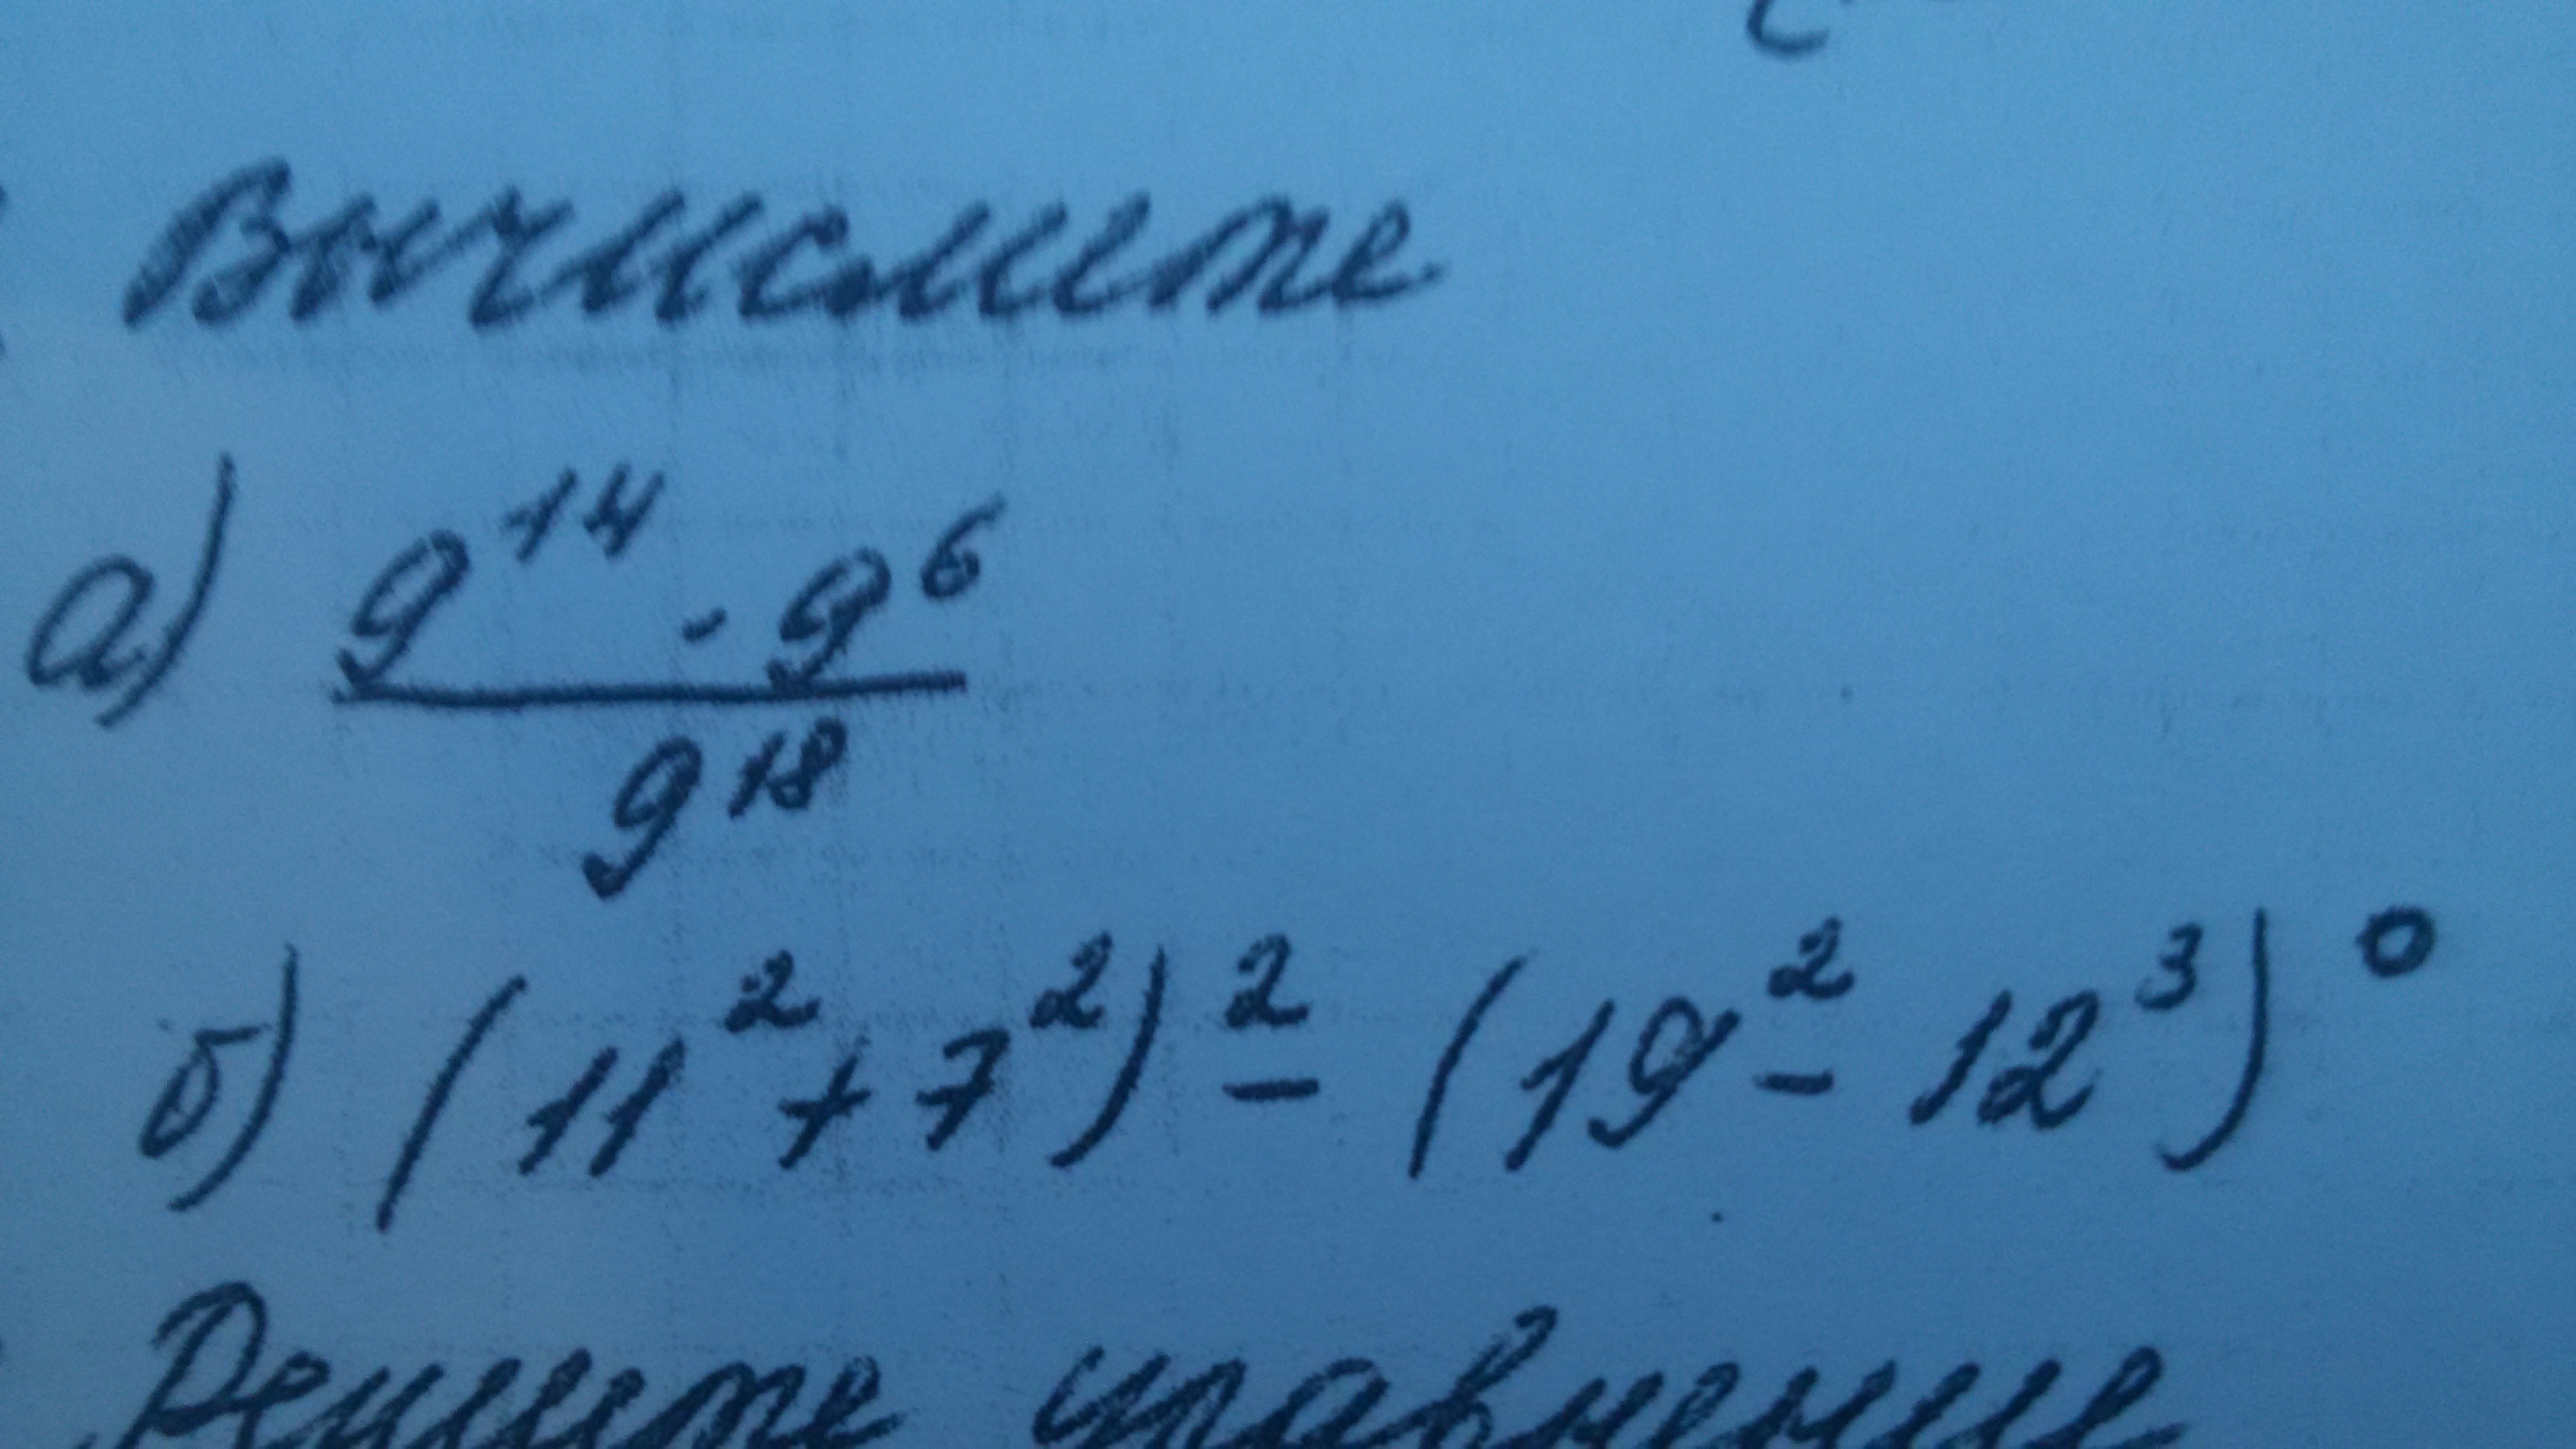 Вычислите
а) 9¹⁴ · 9⁶
9¹⁸
б) (11² + 7²)² - (19² - 12³)⁰
Решите уравнение